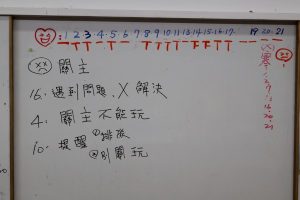 1 2 3 4 5 6 7 8 9 10 11 12 13 14 15 16 17 19 20 21
關主
16. 遇到問題，X 解決
4. 關主不能玩
10. 提醒 ①排隊
②別關玩